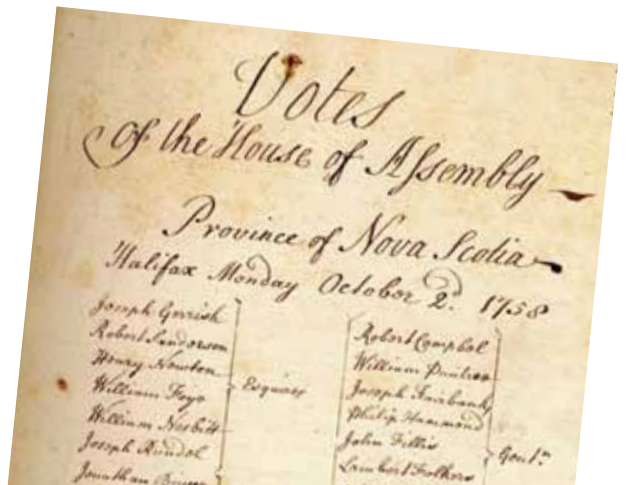 Votes
of the House of Assembly
Province of Nova Scotia
Halifax Monday October 2d. 1758
Joseph Gerrish
Robert Sanderson
Henry Newton
William Foye
William Nesbitt
Joseph Rundol
Jonathan
Esquires
Robert Campbel
William Pantree
Joseph Fairbanks
Philip Hammond
John Fillis
Lambert Folkers
Gent.n